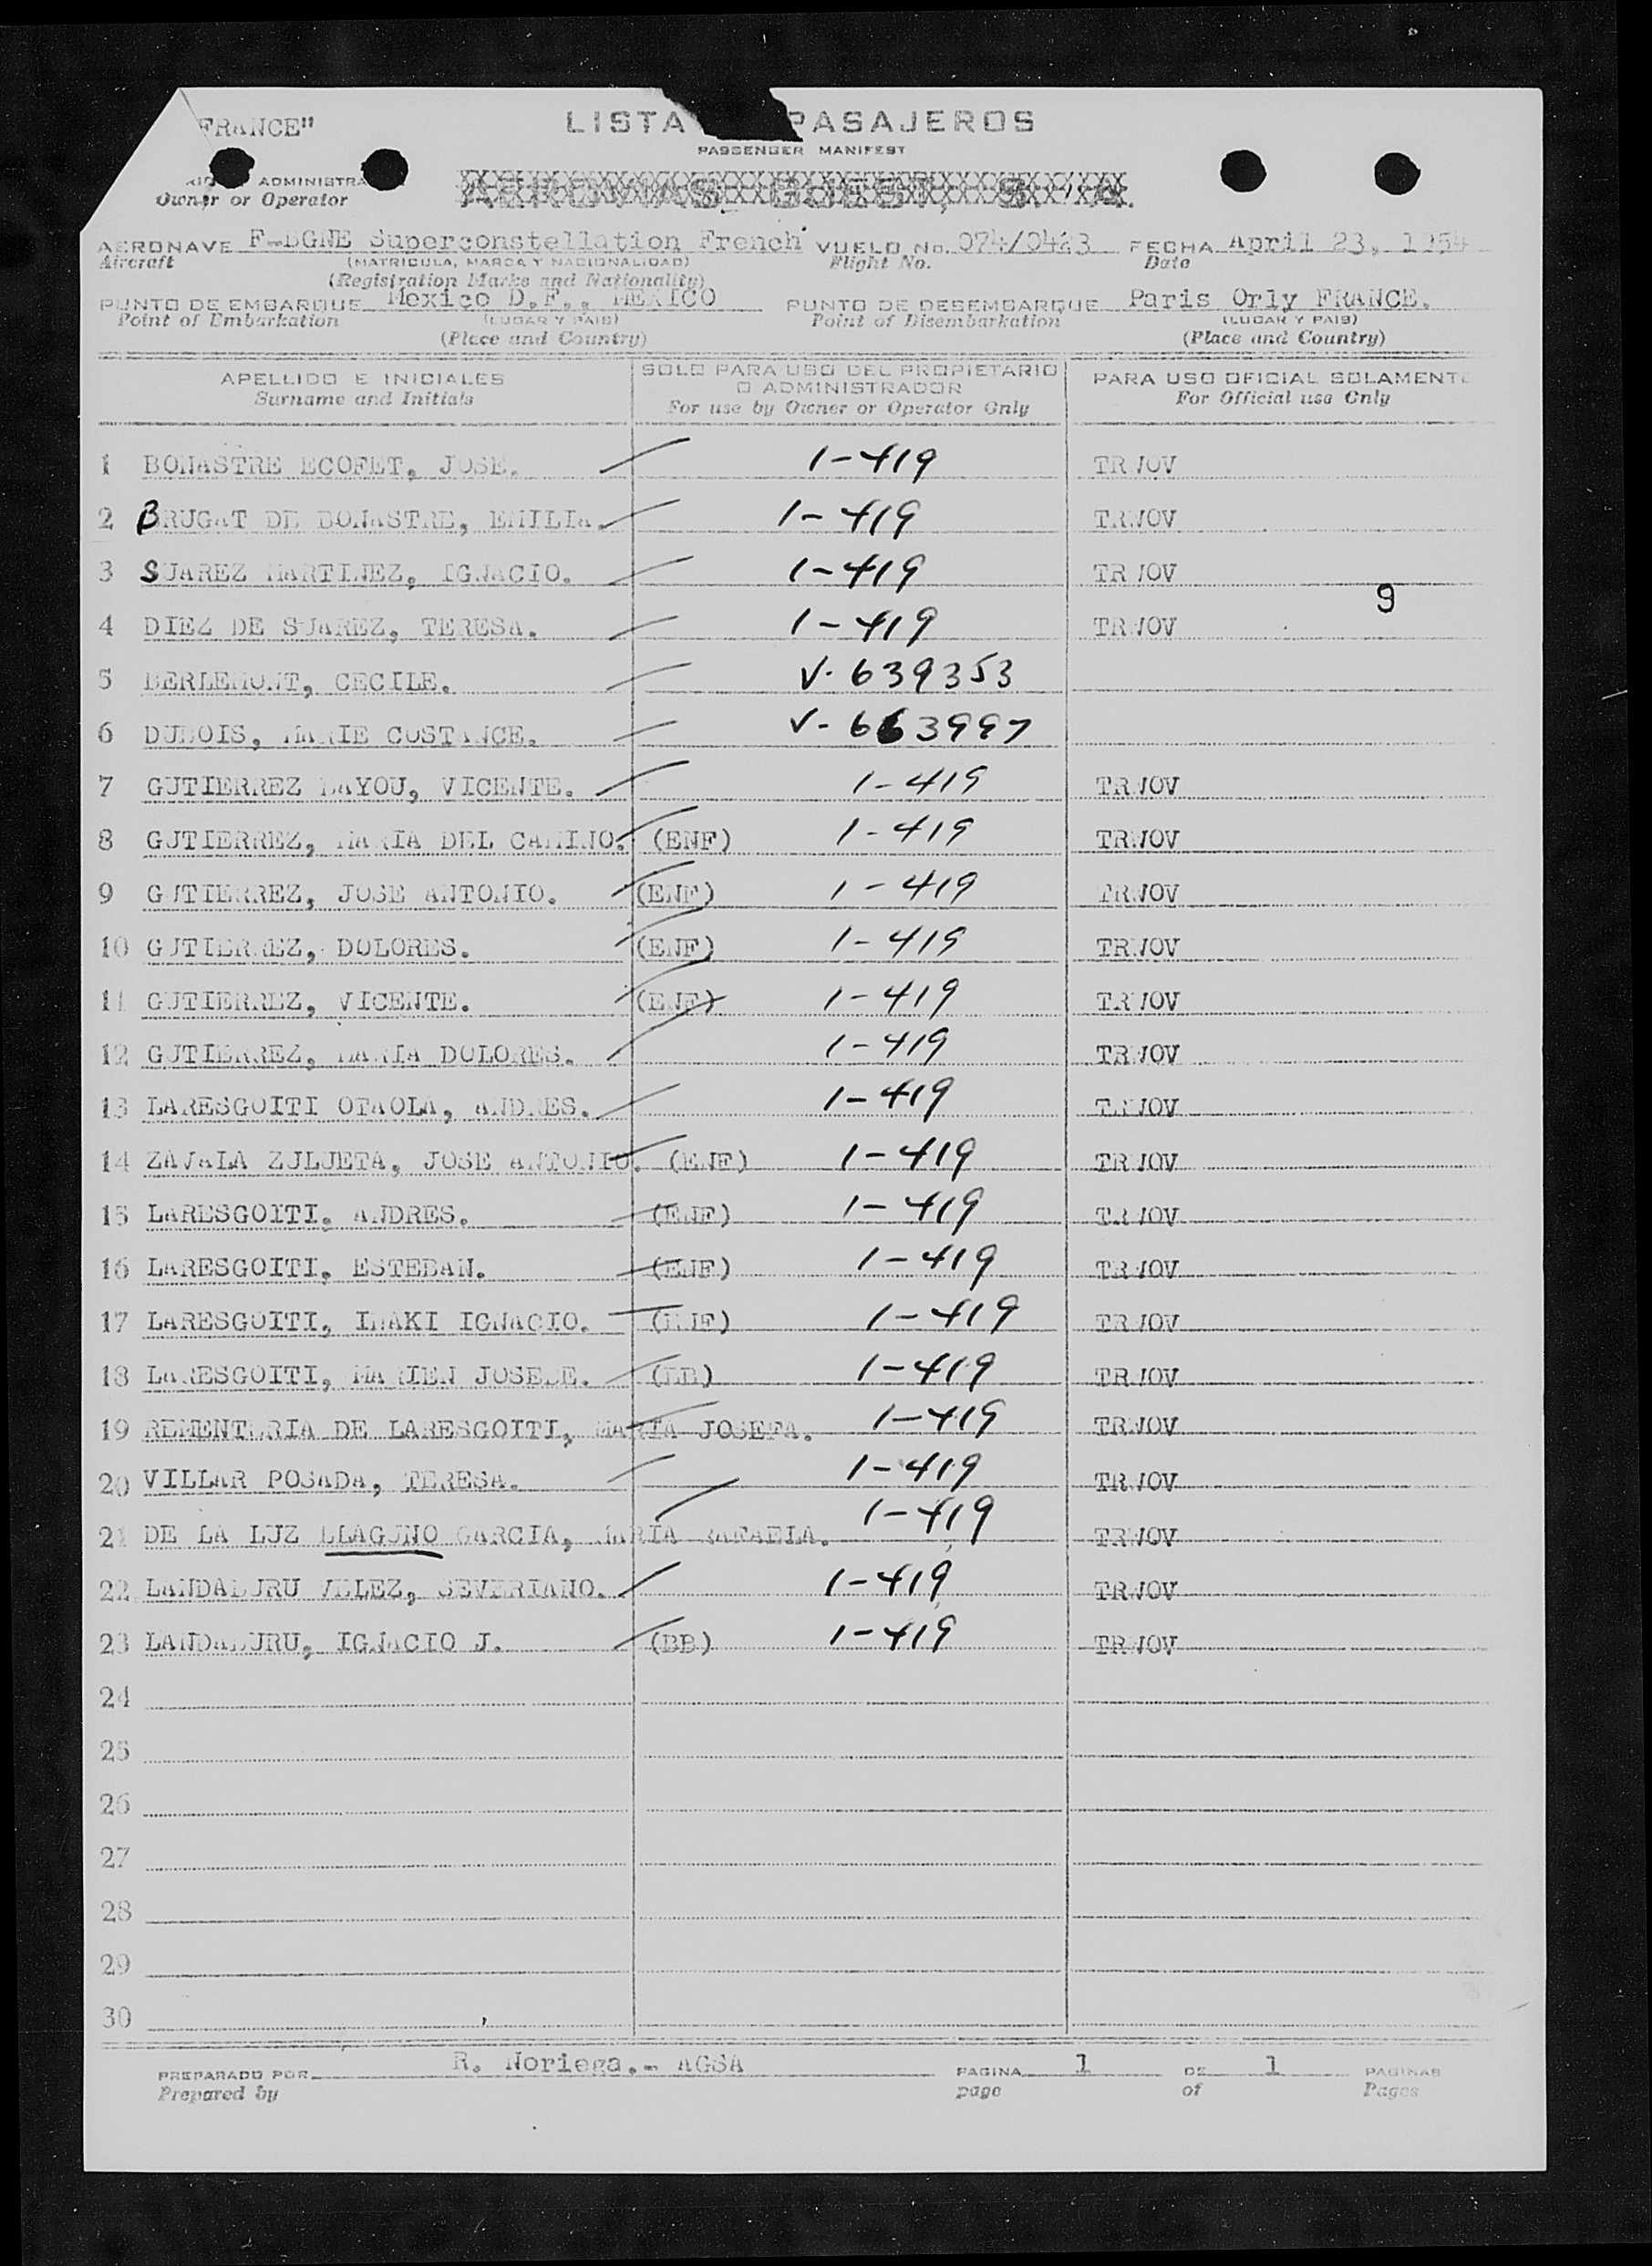 FRANCE"
LISTA PASAJEROS
PASSENGER MANIFEST
ADMINISTRA
Owner or Operator
AERONAVE F-BGNE Superconstellation French VUELO No. 074/0423 FECHA April 23, 1954
Aircraft (MATRICULA, MARCA Y NACIONALIDAD) Flight No. Date
(Registration Marks and Nationality)
PUNTO DE EMBARQUE Mexico D.F., MEXICO PUNTO DE DESEMBARQUE Paris Orly FRANCE.
Point of Embarkation (LUGAR Y PAIS) Point of Disembarkation (LUGAR Y PAIS)
(Place and Country) (Place and Country)
APELLIDO E INICIALES SOLO PARA USO DEL PROPIETARIO O ADMINISTRADOR PARA USO OFICIAL SOLAMENTE
Surname and Initials For use by Owner or Operator Only For Official use Only
1 BONASTRE ECOFET, JOSE. 1-419 TRWOV
2 BRUGAT DE BONASTRE, EMILIA. 1-419 TRWOV
3 SUAREZ MARTINEZ, IGNACIO. 1-419 TRWOV
9
4 DIEZ DE SUAREZ, TERESA. 1-419 TRWOV
5 BERLEMONT, CECILE. V-639353
6 DUBOIS, MARIE COSTANCE. V-663997
7 GUTIERREZ BAYOU, VICENTE. 1-419 TRWOV
8 GUTIERREZ, MARIA DEL CAMINO. (ENF) 1-419 TRWOV
9 GUTIERREZ, JOSE ANTONIO. (ENF) 1-419 TRWOV
10 GUTIERREZ, DOLORES. (ENF) 1-419 TRWOV
11 GUTIERREZ, VICENTE. (ENF) 1-419 TRWOV
12 GUTIERREZ, MARIA DOLORES. 1-419 TRWOV
13 LARESGOITI OTAOLA, ANDRES. 1-419 TRWOV
14 ZAVALA ZULUETA, JOSE ANTONIO. (ENF) 1-419 TRWOV
15 LARESGOITI, ANDRES. (ENF) 1-419 TRWOV
16 LARESGOITI, ESTEBAN. (ENF) 1-419 TRWOV
17 LARESGOITI, IÑAKI IGNACIO. (ENF) 1-419 TRWOV
18 LARESGOITI, MARIEN JOSEBE. (BB) 1-419 TRWOV
19 REMENTERIA DE LARESGOITI, MARIA JOSEFA. 1-419 TRWOV
20 VILLAR POSADA, TERESA. 1-419 TRWOV
21 DE LA LUZ LLAGUNO GARCIA, MARIA RAFAELA. 1-419 TRWOV
22 LANDABURU VELEZ, SEVERIANO. 1-419 TRWOV
23 LANDABURU, IGNACIO J. (BB) 1-419 TRWOV
24
25
26
27
28
29
30
PREPARADO POR R. Noriega.- AGSA PAGINA 1 DE 1 PAGINAS
Prepared by page of Pages